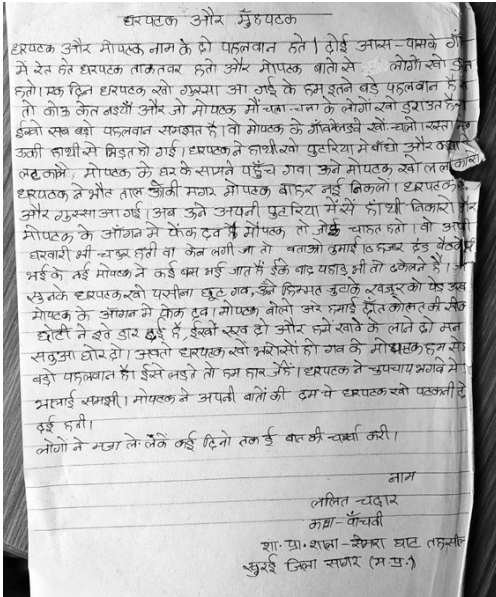 धरपटक और मुँहपटक
धरपटक और मोपटक नाम के दो पहलवान हते। दोई आस-पासके गाँ
में रेत हते धरपटक ताकतवर हतो और मोपटक बातों से लोगों खों
हतो। एक दिन धरपटक खों गुस्सा आ गई के हम इतने बड़े पहलवान हैं
तो कोऊ केत नइयाँ और जो मोपटक मौं चला-चला के लोगों खों डराउत
ईखों सब बड़ो पहलवान समझत है। वो मोपटक के गाँव लड़वे खों चलो। रस्ता
ऊकी हाथी से भिड़ंत हो गई। धरपटक ने हाथी खों पुटरिया में बाँधो और
लटकाके, मोपटक के घर के सामने पहुँच गव। ऊने मोपटक खों ललकारो
धरपटक ने भौत ताल ठोकी मगर मोपटक बाहर नई निकलो। धरपटक
और गुस्सा आ गई। अब ऊने अपनी पुटरिया में से हाथी निकारो और
मोपटक के आँगन में फेंक दव है मौपटक तो जोई चाहत हतो। वो अपनी
घरवारी भी चतुर हती वा केन लगी जा तो बताओ तुमाई हजार दंड बैठकें
भई के नई मोपटक ने कई बस भई जात हैं ईके बाद पहाड़ भी तो ढकेलने है।
सुनके धरपटक खों पसीना छूट गव, ऊँने हिम्मत जुटाके खजूर को पेड़
मोपटक के आँगन में फेंक दव। मोपटक बोलो अरे हमाई दाँत की सींक
छोटी ने इते डार दई है, ईखों रख दो और हमें खावे के लाने दो मन
सतुआ घोर दो। अबतो धरपटक खों भरोसो हो गव के मोपटक हम से
बड़ो पहलवान है। ईसे लड़ते तो हम हार जेहें। धरपटक ने चुपचाप भगवे में
भलाई समझी। मोपटक ने अपनी बातों की दम पे धरपटक खों पटकनी दे
दई हती।
लोगों ने मजा ले-लेकें कई दिनो तक ई बात की चर्चा करी।
नाम
ललित चढ़ार
कक्षा-पाँचवी
शा. प्रा. शाला-सेमरा घाट तहसील
खुरई जिला सागर (म.प्र.)